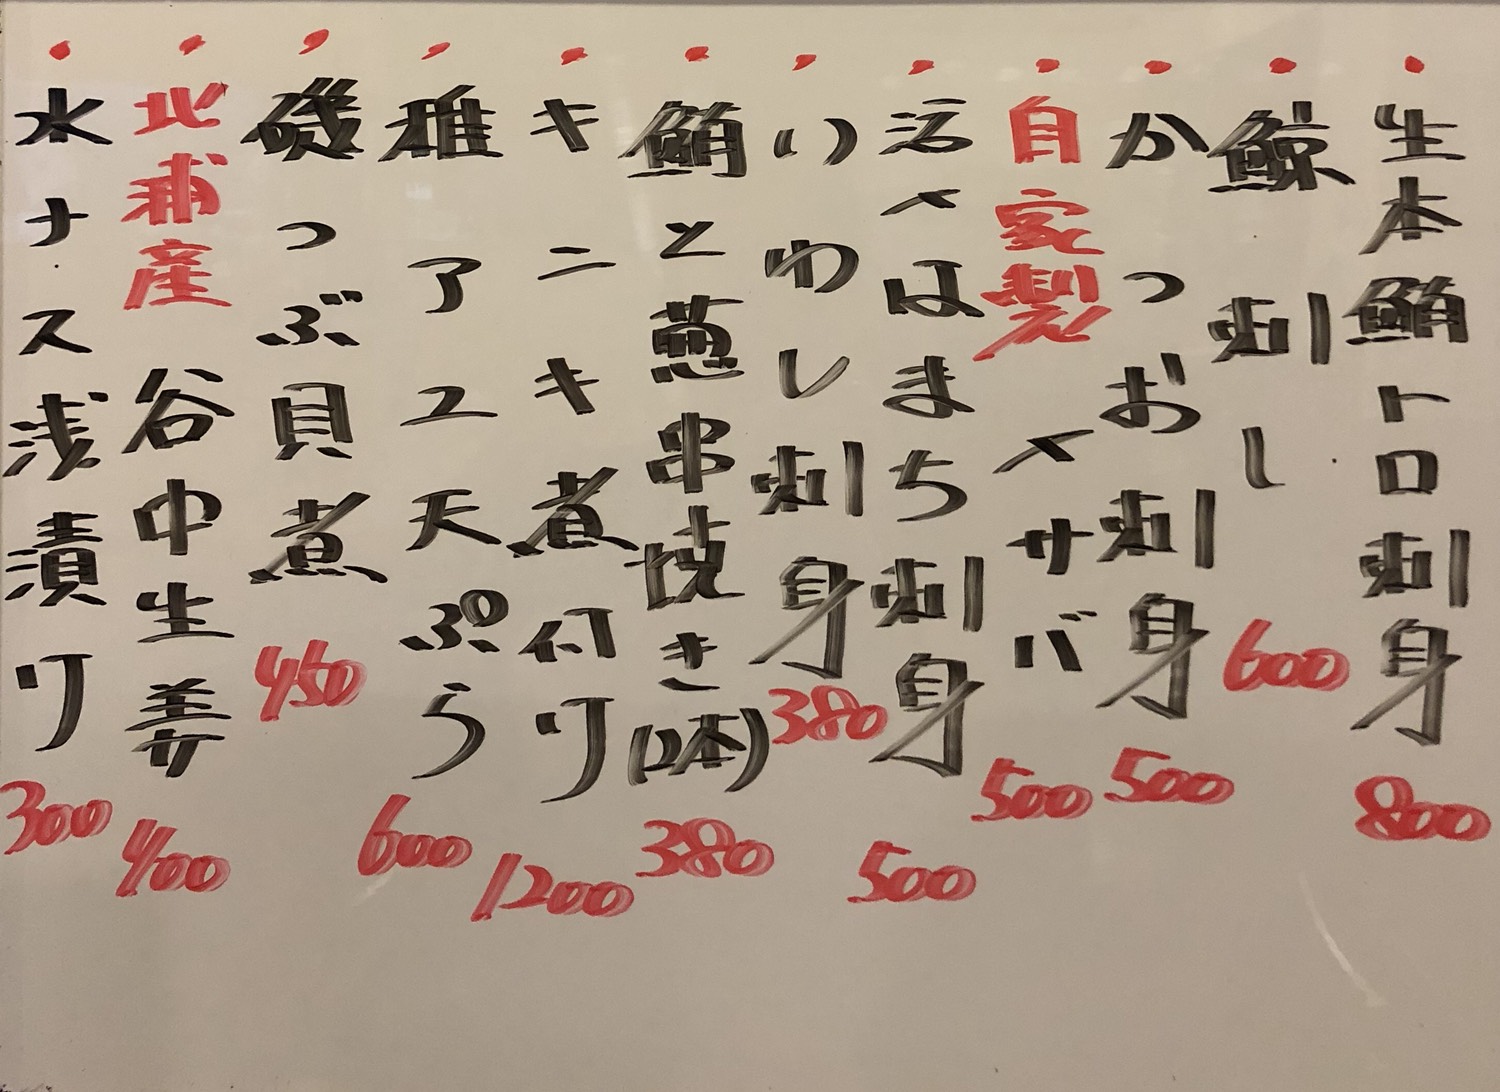 生本鮪トロ刺身 800
鯨刺し 600
かつお刺身 500
自家製〆サバ 500
活〆はまち刺身 500
いわし刺身 380
鮪と葱串焼き(2本) 380
キンキ煮付け 1200
稚アユ天ぷら 600
磯つぶ貝煮 450
北浦産谷中生姜 400
水ナス浅漬け 300